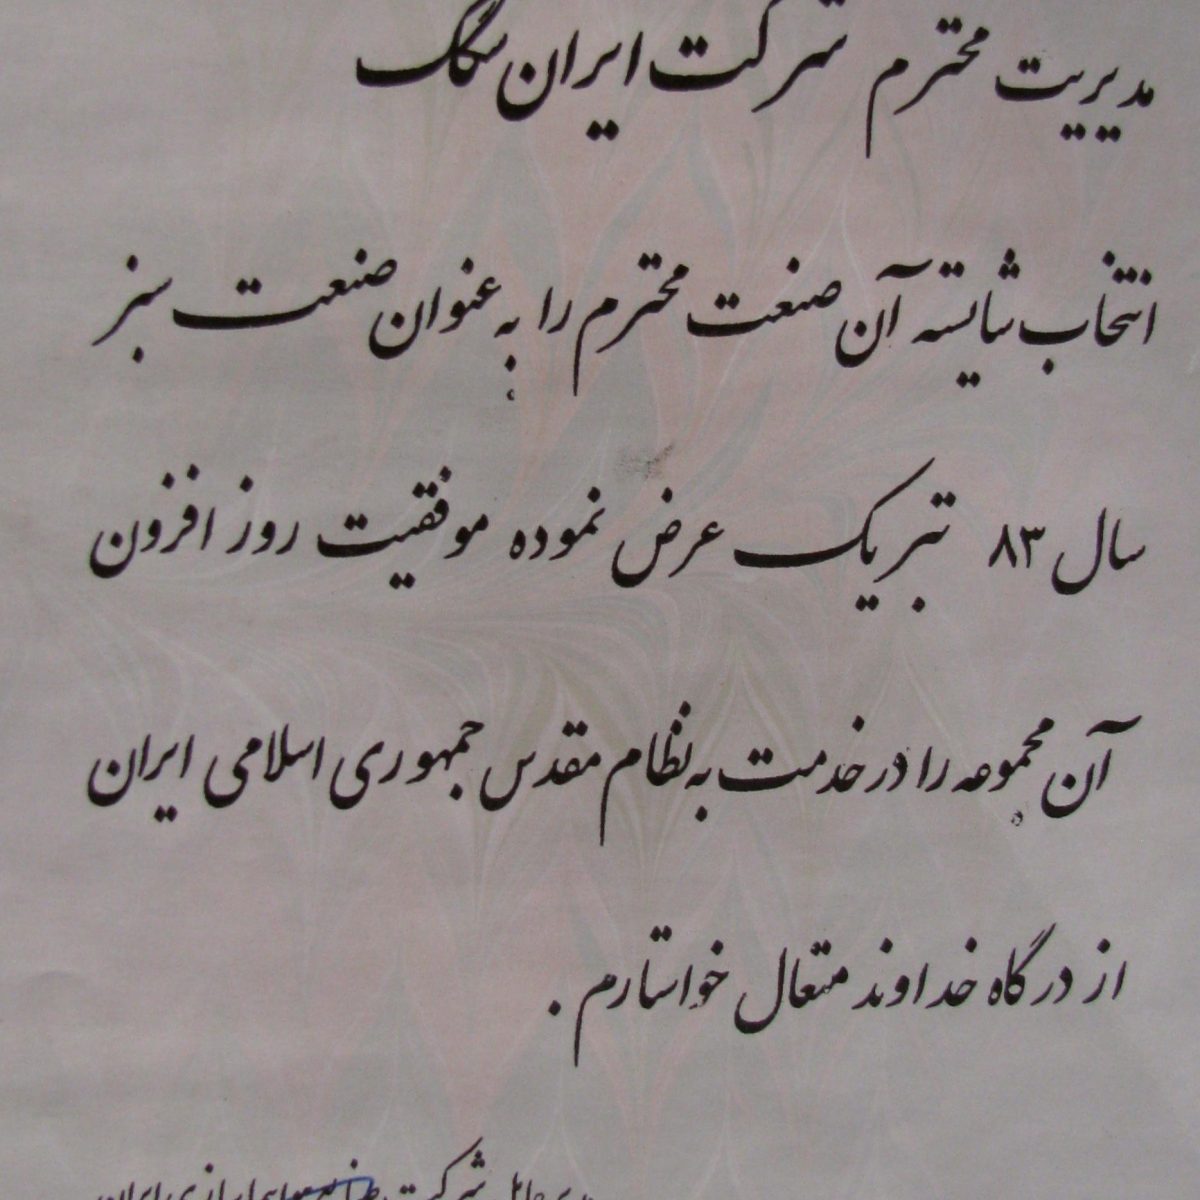 مدیریت محترم شرکت ایران سگک
انتخاب شایسته آن صنعت محترم را به عنوان صنعت سبز
سال ۸۳ تبریک عرض نموده موفقیت روز افزون
آن مجموعه را در خدمت به نظام مقدس جمهوری اسلامی ایران
از درگاه خداوند متعال خواستارم .
مدیر عامل شرکت